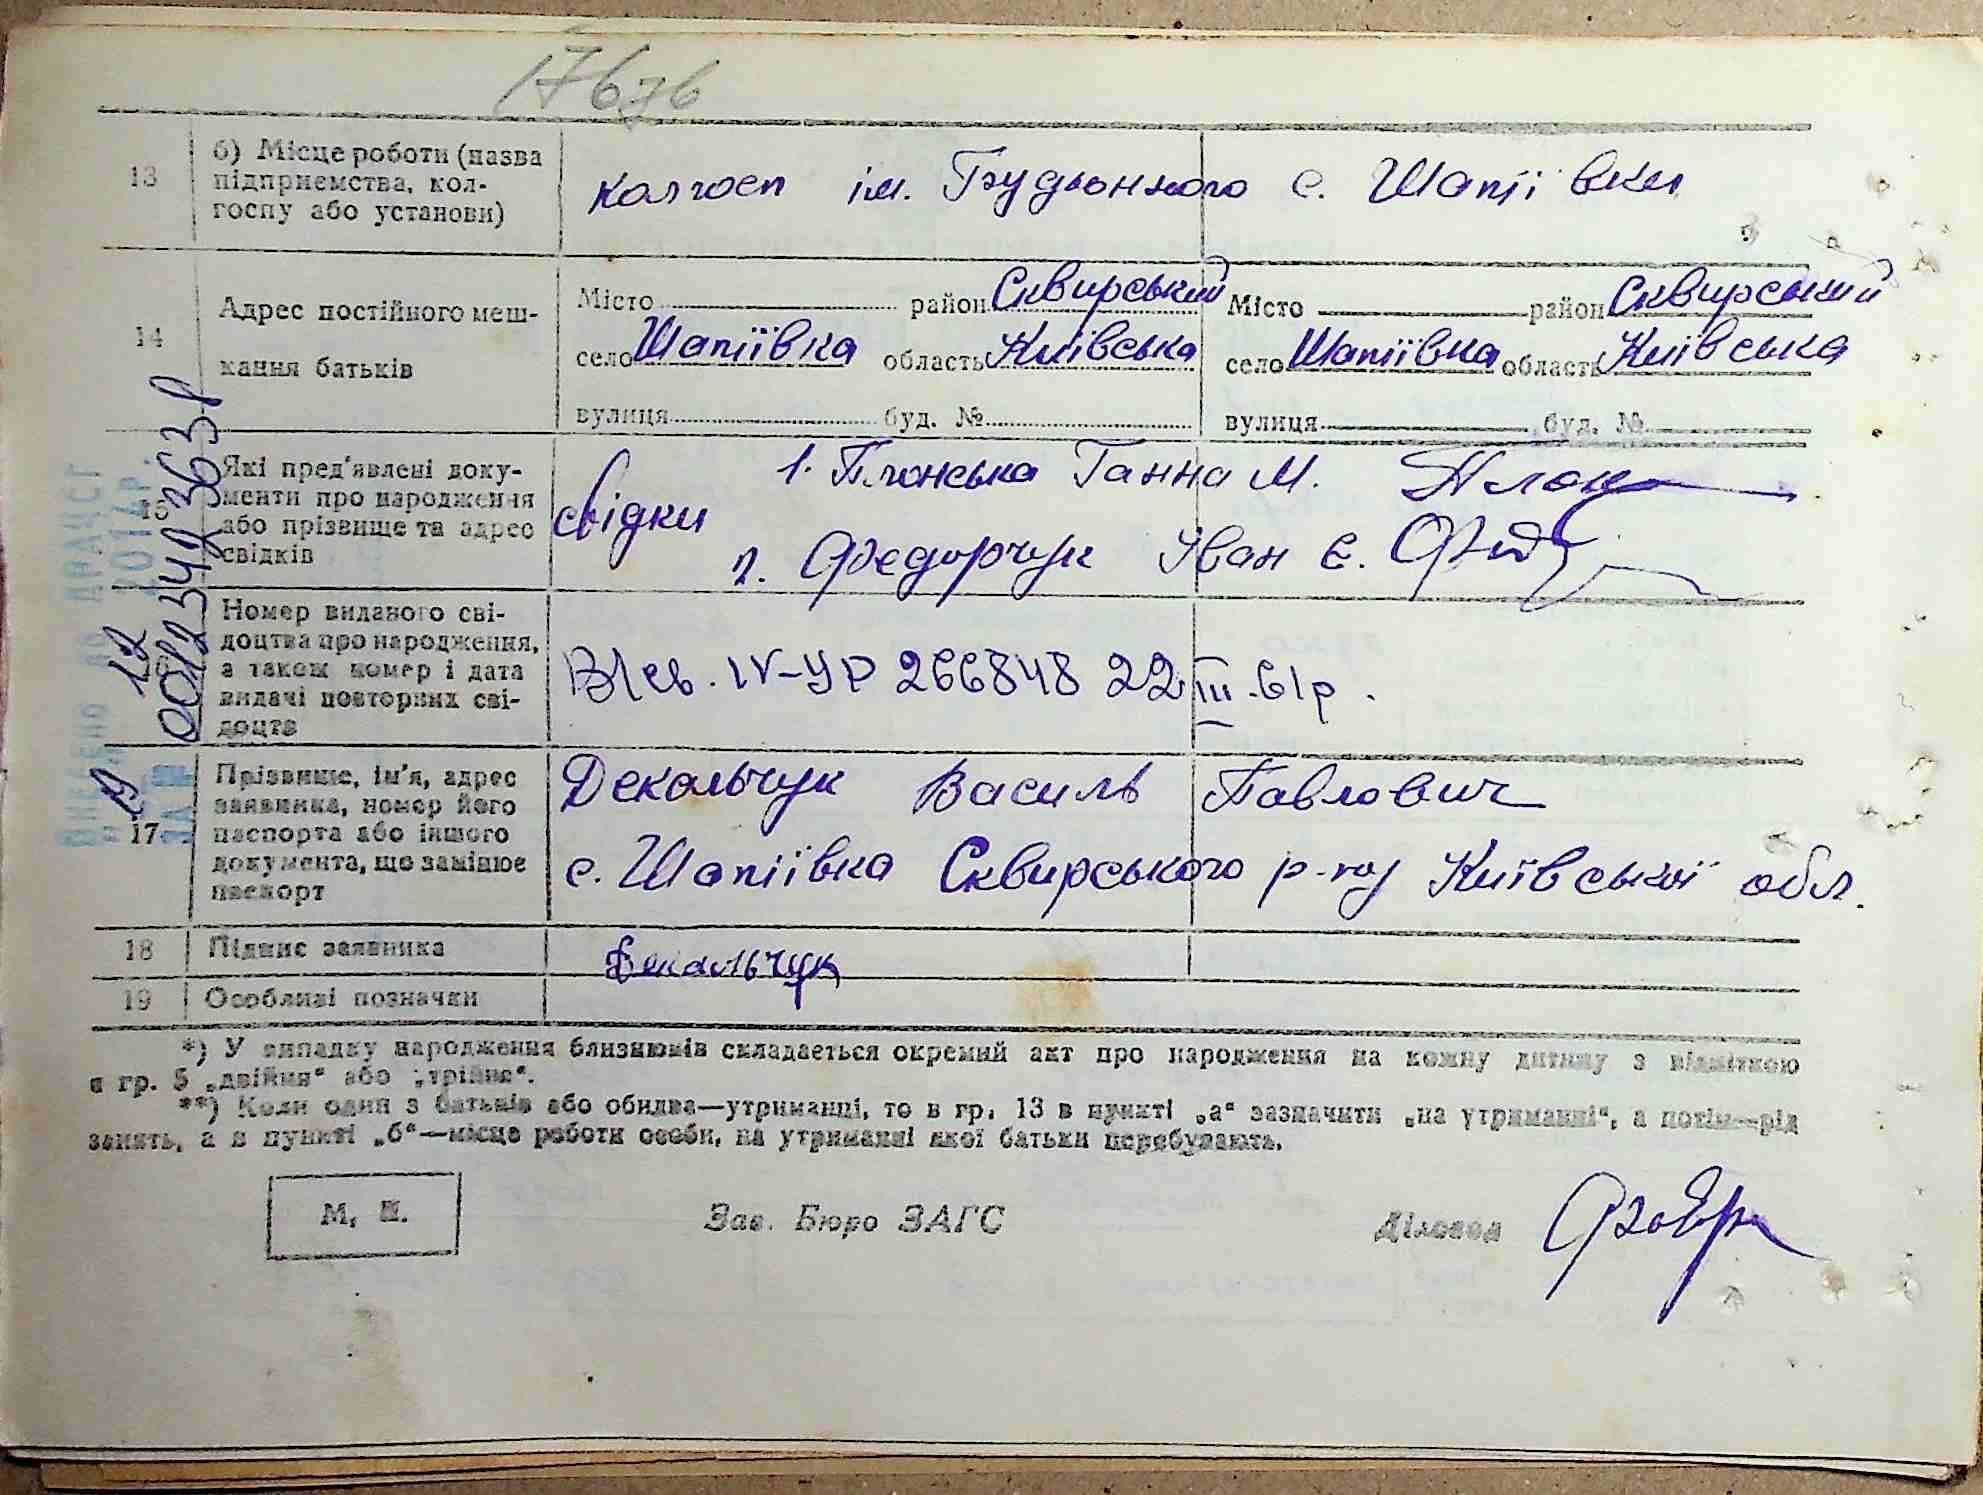 1767б
13 б) Місце роботи (назва підприємства, колгоспу або установи)
колгосп ім. Будьонного с. Шапіївки
14 Адрес постійного мешкання батьків
Місто район Сквирський Місто район Сквирський
село Шапіївка область Київська село Шапіївка область Київська
вулиця буд. № вулиця буд. №
15 Які пред'явлені документи про народження або прізвище та адрес свідків
свідки
1. Плонська Ганна М.
2. Федорчук Іван Є.
16 Номер виданого свідоцтва про народження, а також номер і дата видачі повторних свідоцтв
В/св. IV-УР 266848 22 III.61р.
17 Прізвище, ім'я, адрес заявника, номер його паспорта або іншого документа, що замінює паспорт
Декальчук Василь Павлович
с. Шапіївка Сквирського р-ну Київської обл.
18 Підпис заявника
Декальчук
19 Особливі позначки
*) У випадку народження близнюків складається окремий акт про народження на кожну дитину з відміткою
в гр. 5 „двійня“ або „трійня“.
**) Коли один з батьків або обидва—утриманці, то в гр. 13 в пункті „а“ зазначити „на утриманні“, а потім—рід
занять, а в пункті „б“—місце роботи особи, на утриманні якої батьки перебувають.
М. П.
Зав. Бюро ЗАГС
Діловод
ВНЕСЕНО ДО ДРАЦСГ
19 12 2017 р.
ЗА №
00123490363